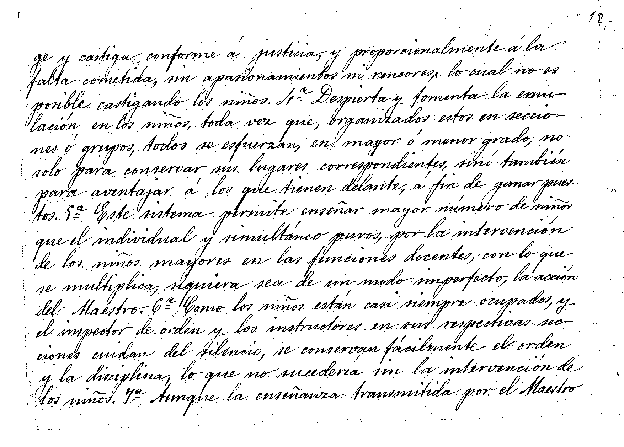 18.
ge y castiga, conforme á justicia, y proporcionalmente á la
falta cometida, sin apasionamientos ni rencores, lo cual no es
posible castigando los niños. 4ª Despierta y fomenta la emu-
lación en los niños, toda vez que, organizados estos en seccio-
nes ó grupos, todos se esfuerzan, en mayor ó menor grado, no
solo para conservar sus lugares correspondientes, sino también
para aventajar á los que tienen delante, á fin de ganar pues-
tos. 5ª Este sistema permite enseñar mayor número de niños
que el individual y simultáneo puros, por la intervención
de los niños mayores en las funciones docentes, con lo que
se multiplica, siquiera sea de un modo imperfecto, la acción
del Maestro. 6ª Como los niños están casi siempre ocupados, y
el inspector de orden y los instructores en sus respectivas sec-
ciones cuidan del silencio, se conservan fácilmente el orden
y la disciplina, lo que no sucedería sin la intervención de
los niños. 7ª Aunque la enseñanza transmitida por el Maestro